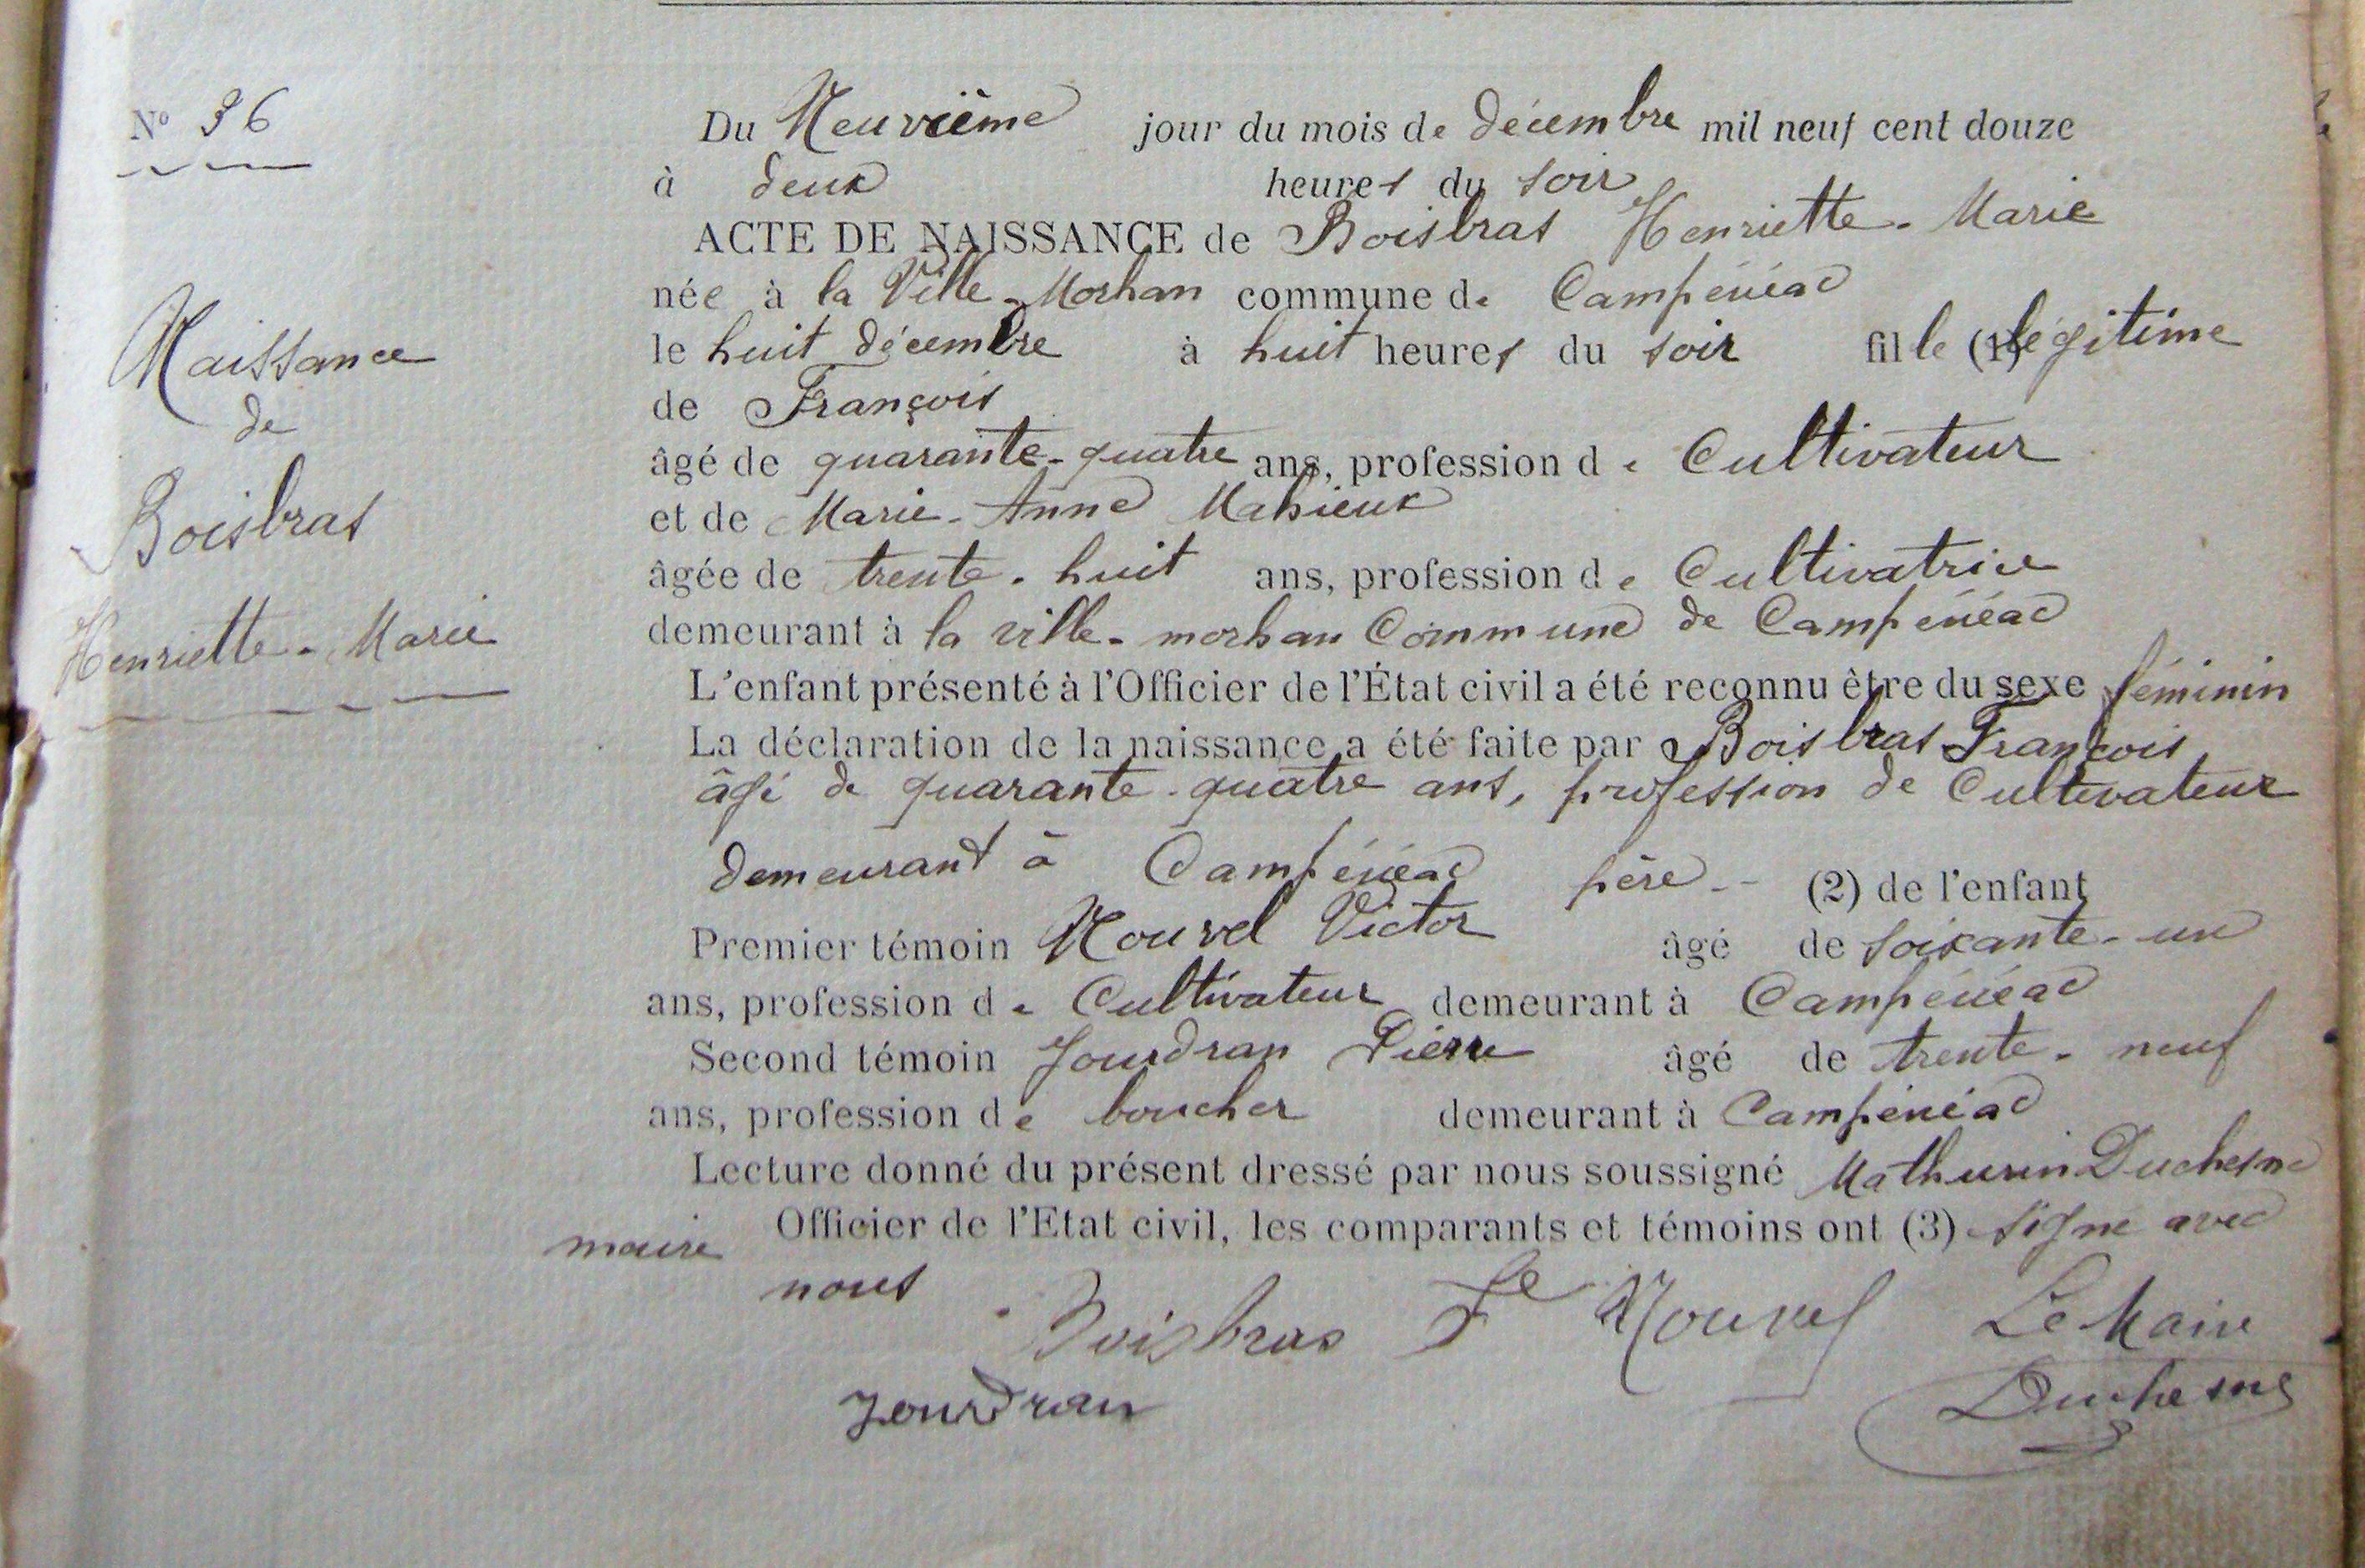 N° 36
Du Neuvième jour du mois de décembre mil neuf cent douze
à deux heures du soir
ACTE DE NAISSANCE de Boisbras Henriette-Marie
née à la Ville-Morhan commune de Campénéac
le huit décembre à huit heures du soir fille (1) légitime
de François
âgé de quarante-quatre ans, profession de Cultivateur
et de Marie-Anne Mahieux
âgée de trente-huit ans, profession de Cultivatrice
demeurant à la ville-morhan Commune de Campénéac
L'enfant présenté à l'Officier de l'État civil a été reconnu être du sexe féminin
La déclaration de la naissance a été faite par Boisbras François
âgé de quarante-quatre ans, profession de Cultivateur
demeurant à Campénéac père -- (2) de l'enfant
Premier témoin Nouvel Victor âgé de soixante-un
ans, profession de Cultivateur demeurant à Campénéac
Second témoin Jourdran Pierre âgé de trente-neuf
ans, profession de boucher demeurant à Campénéac
Lecture donné du présent dressé par nous soussigné Mathurin Duchesne
maire Officier de l'Etat civil, les comparants et témoins ont (3) signé avec
nous
Boisbras Fs Nouvel Le Maire
Jourdran Duchesne
Naissance
de
Boisbras
Henriette-Marie